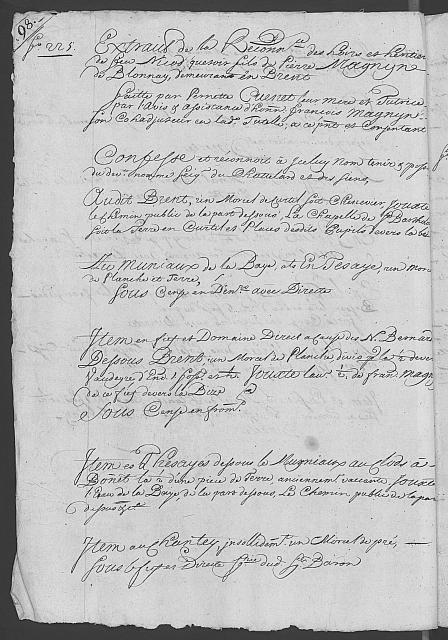 98.
fo 225.
Extrait de la Reconn.ce des hoirs et heritiers
de feu Nico quevoir fils de Pierre Magnyn
de Blonnay, demeurans en Brent
faitte par Pernette Cuenet leur mere et Tutrice
par l'avis & assistance d'honn. françois Magnyn
son Cohadjuteur en lad. Tutele, a ce pnt et Consentant
Confesse et reconnoit à celuy Nom tenir & posse
du des. nomme Seigr du Chattelard et des siens,
Audit Brent, un Morcel de Curtil soit Chenevier, jouxte
le chemin public de la part dessous, La Chapelle de
soit la Terre en Curtil et Places desdits devers la
Ez Muniaux de la Baye, ats En Tesaye, un mor
de Planche et Terre,
sous Cense en Den.rs avec Directe
Item en fief et Domaine Direct a cause des N. Bernard
Dessous Brent un Morcel de Planche la ½ devers
Vaudeyre Jouxte l'au. ½ de fran. Magn
de ce fief devers la Bize
sous Cense en from.
Item es Thesayes dessous le Mugniaux au clos à
Bonet la ½ d'une piece de Terre, anciennent jouxte
l'Eau de la Baye de la part dessous, Le Chemin public de la par
dessous
Item au Chantey, un Morcel de pré,
sous le fief et Directe dud. Sr Baron